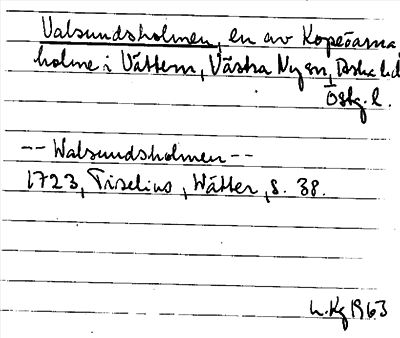 Valsundsholmen, en av Kopearna,
holme i Vättern, Västra Ny sn, Aska hd
Östg. l.
-- Walsundsholmen --
1723, Tiselius, Wätter, s. 38.
1963